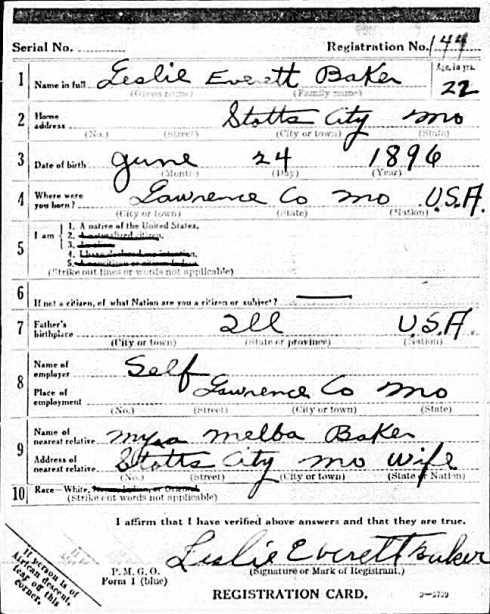 Serial No. Registration No. 144
1 Name in full Leslie Everett Baker Age, in yrs. 22
(Given name) (Family name)
2 Home address Stotts City Mo
(No.) (Street) (City or town) (State)
3 Date of birth June 24 1896
(Month) (Day) (Year)
4 Where were you born? Lawrence Co Mo U.S.A.
(City or town) (State) (Nation)
5 I am
1. A native of the United States,
2. A naturalized citizen,
3.
4.
5.
(Strike out lines or words not applicable)
6 If not a citizen, of what Nation are you a citizen or subject?
7 Father's birthplace Ill U.S.A.
(City or town) (State or province) (Nation)
8 Name of employer Self
Place of employment Lawrence Co Mo
(No.) (Street) (City or town) (State)
9 Name of nearest relative Melba Baker
Address of nearest relative Stotts City Mo Wife
(No.) (Street) (City or town) (State or Nation)
10 Race—White,
(Strike out words not applicable)
I affirm that I have verified above answers and that they are true.
Leslie Everett Baker
P. M. G. O.
Form 1 (blue)
(Signature or Mark of Registrant.)
REGISTRATION CARD.
If person is of
African descent,
tear off this
corner.